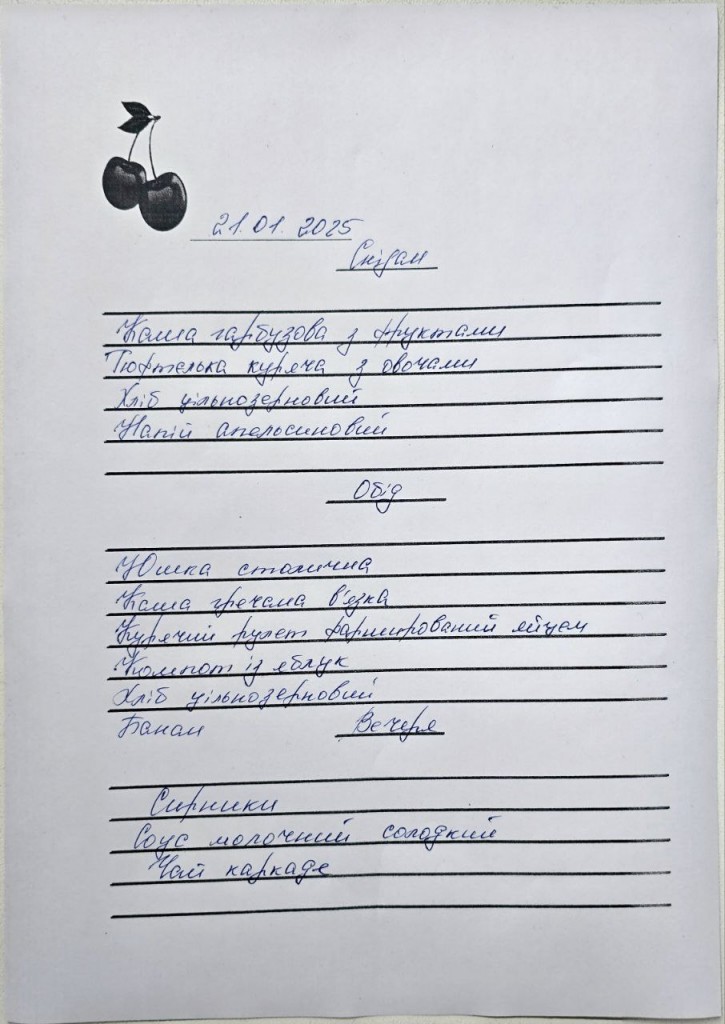 21.01. 2025
Сніданок
Каша гарбузова з фруктами
Тюфтелька куряча з овочами
Хліб цільнозерновий
Напій апельсиновий
Обід
Юшка столична
Каша гречана в'язка
Курячий рулет фарширований яйцем
Компот із яблук
Хліб цільнозерновий
Банан
Вечеря
Сирники
Соус молочний солодкий
Чай каркаде